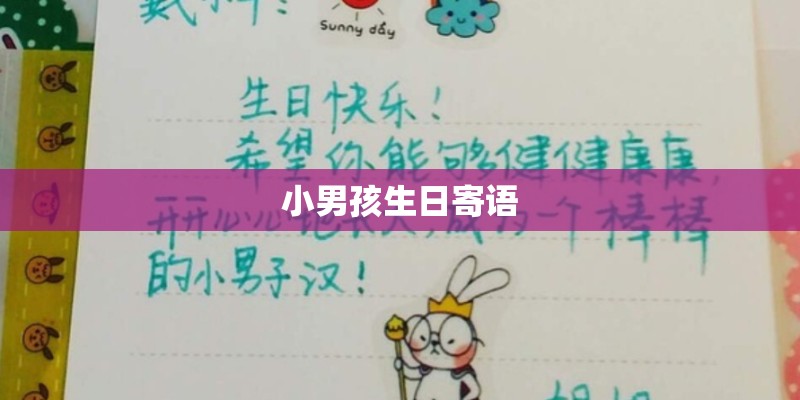 Sunny day
生日快乐!
希望你能够健健康康,
小男孩生日寄语
开开心心地长大,成为一个棒棒
的小男子汉!